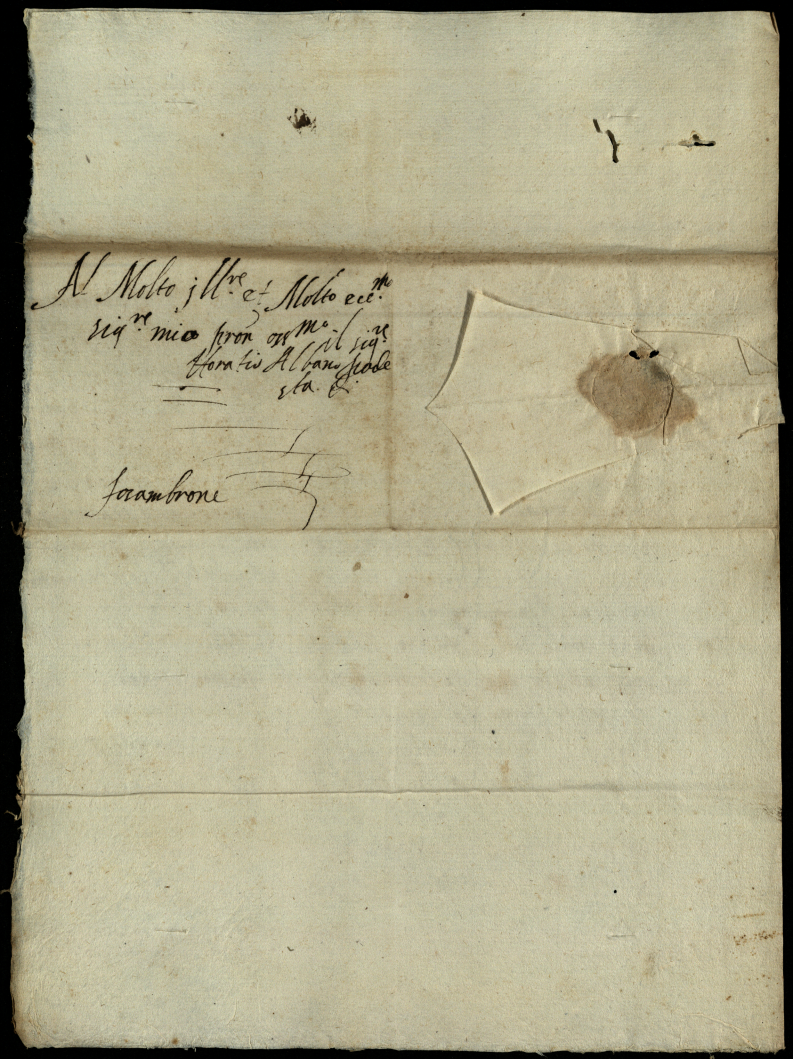 Al Molto jll.re et Molto ecc.mo
sig.re mio pron oss.mo il sig.re
Horatio Albani pode
sta &
focambrone